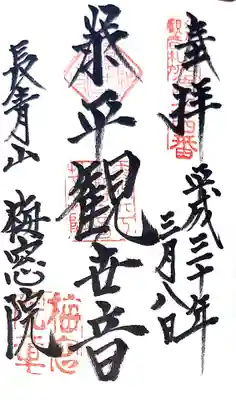 奉拝
平成三十年
三月八日
泰平観世音
長青山
梅窓院